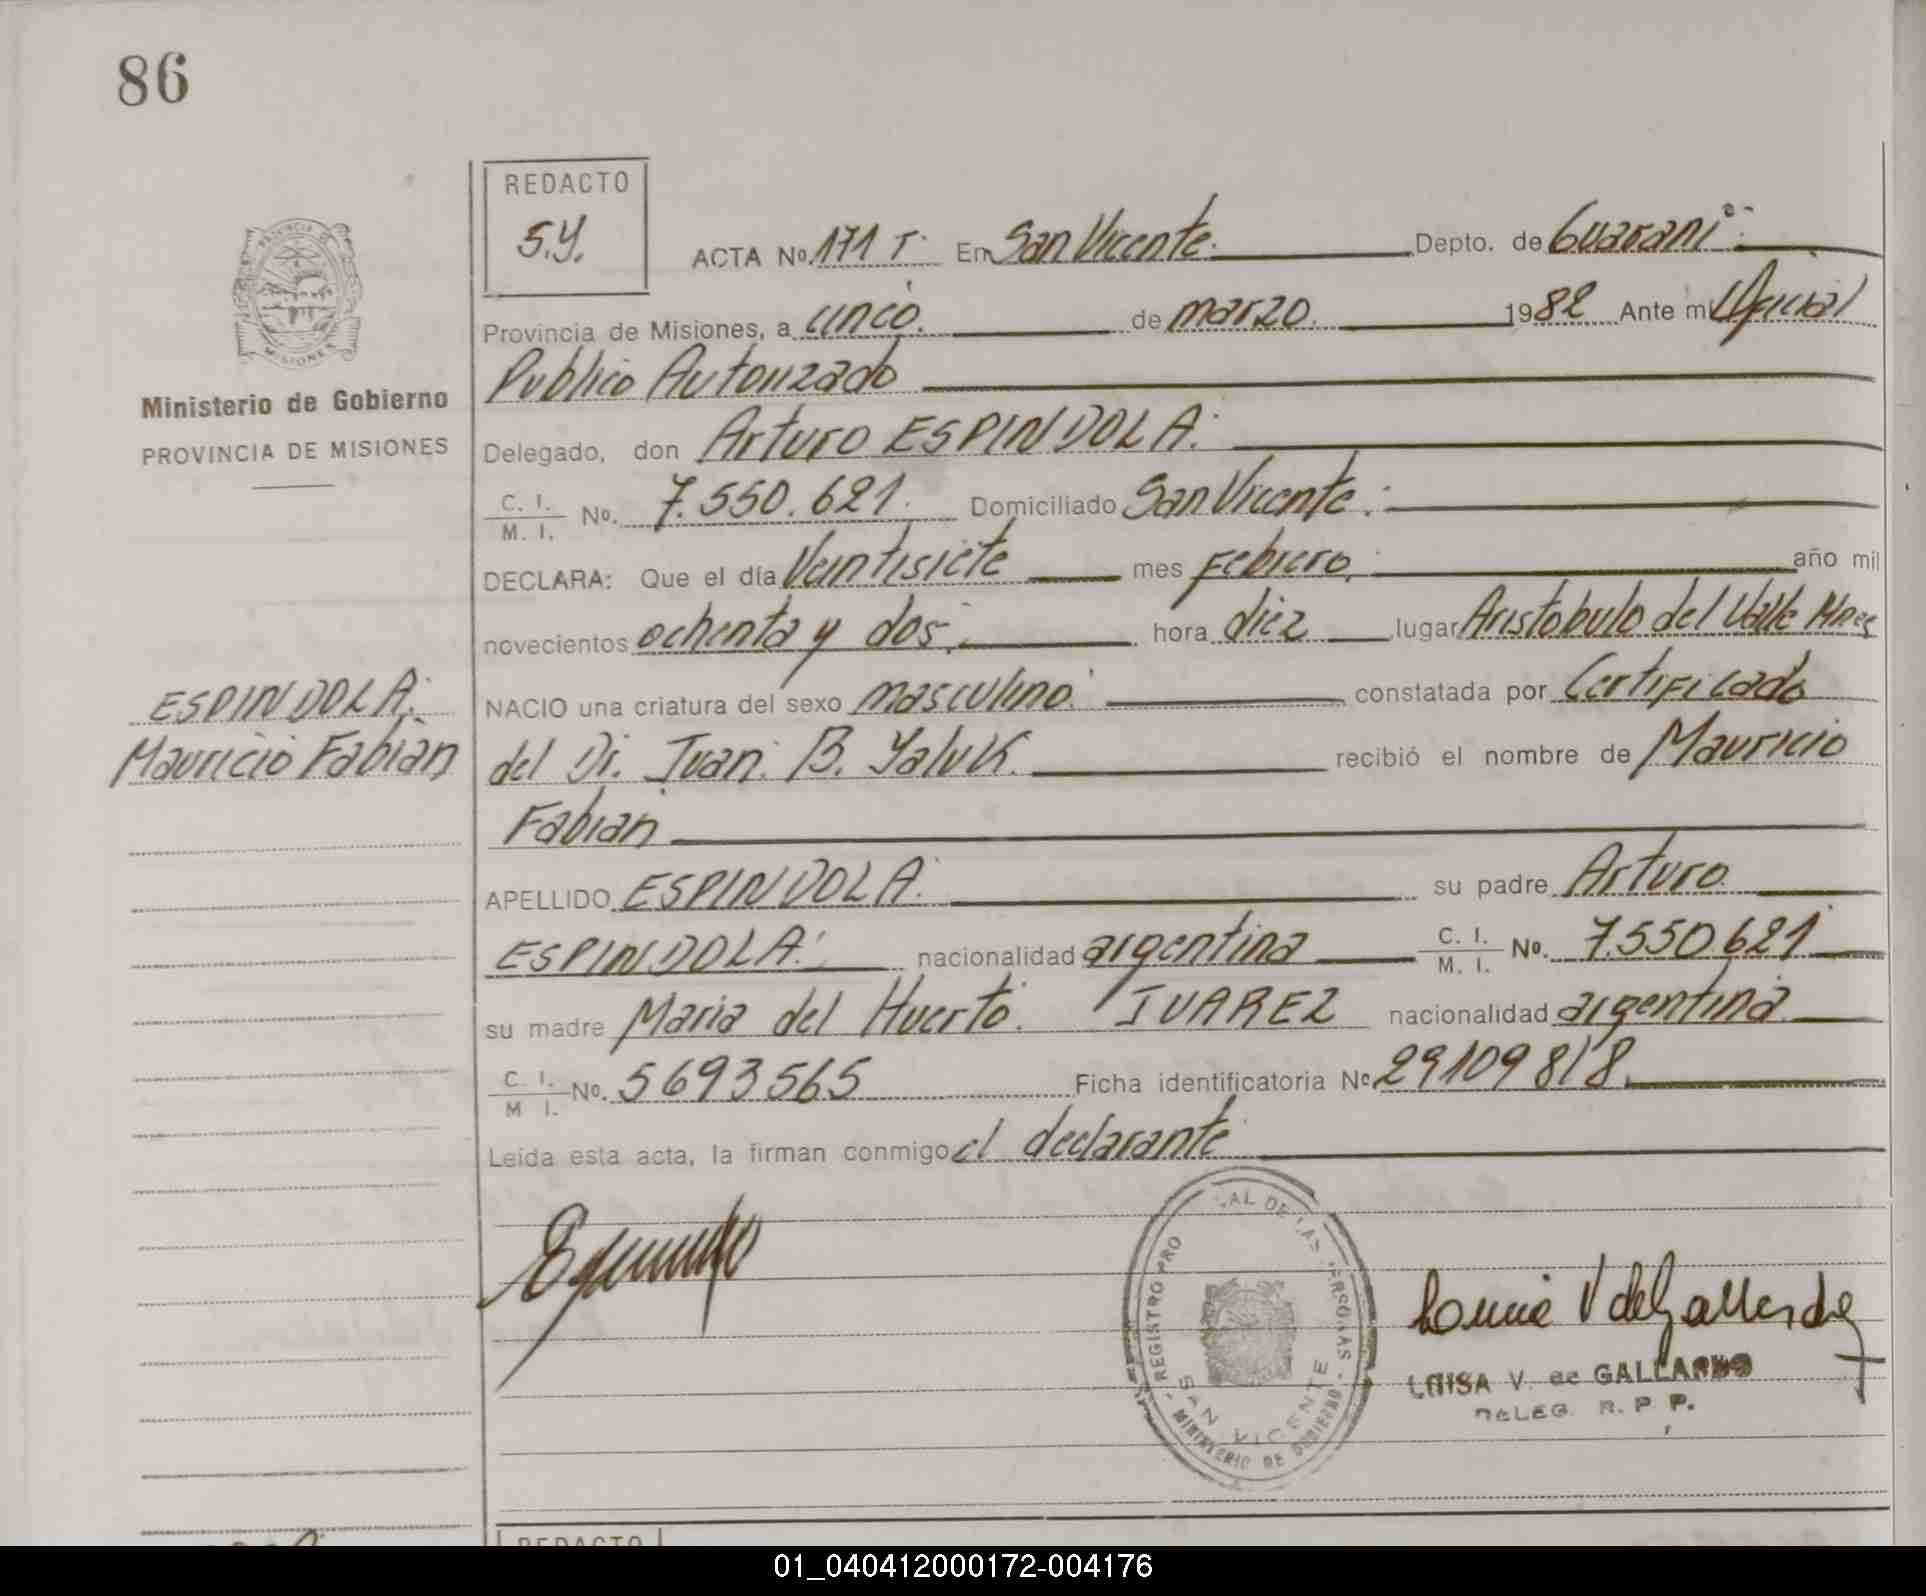 86
REDACTO
S.Y.
ACTA No. 171 T. En San Vicente. Depto. de Guarani
Provincia de Misiones, a cinco. de marzo. 1982 Ante mi Oficial
Publico Autorizado
Delegado, don Arturo ESPINDOLA.
C. I. / M. I. No. 7.550.621. Domiciliado San Vicente.
DECLARA: Que el día Veintisiete mes Febrero. año mil
novecientos ochenta y dos. hora diez lugar Aristobulo del Valle Mnes
NACIO una criatura del sexo masculino. constatada por Certificado
del Dr. Juan. B. Yaluk. recibió el nombre de Mauricio
Fabian
APELLIDO ESPINDOLA. su padre Arturo
ESPINDOLA. nacionalidad argentina C. I. / M. I. No. 7.550.621.
su madre Maria del Huerto. JUAREZ nacionalidad argentina
C. I. / M I. No. 5693565 Ficha identificatoria No 29109818.
Leída esta acta, la firman conmigo el declarante
PROVINCIA DE
MISIONES
Ministerio de Gobierno
PROVINCIA DE MISIONES
ESPINDOLA.
Mauricio Fabian
REGISTRO PRO AL DE LAS PERSONAS
SAN VICENTE
MINISTERIO DE GOBIERNO
V de Gallardo
LUISA V. de GALLARDO
DELEG. R. P. P.
REDACTO
01_040412000172-004176